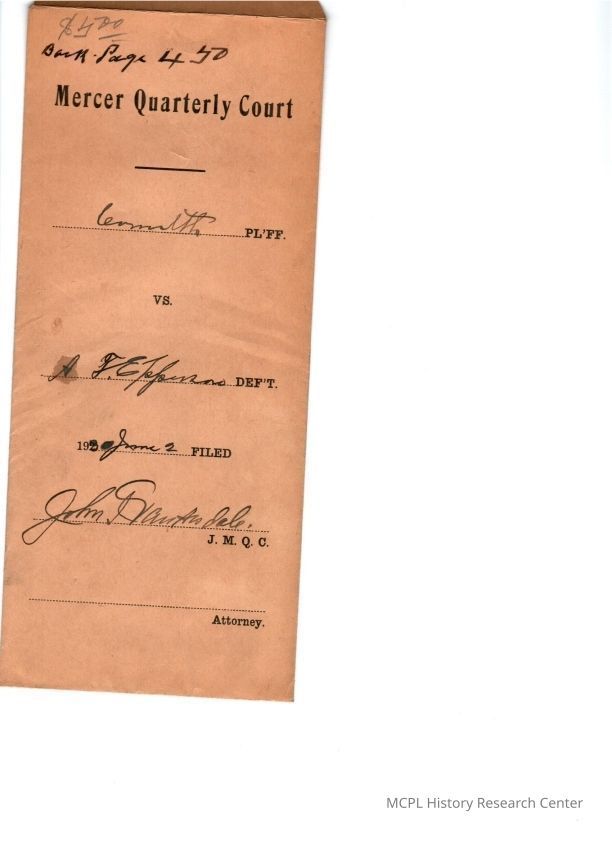 $5.00
Book. Page 4 50
Mercer Quarterly Court
Comwlth. PL'FF.
VS.
A F. Epperson DEF'T.
1920 June 2 FILED
John
J. M. Q. C.
Attorney.
MCPL History Research Center